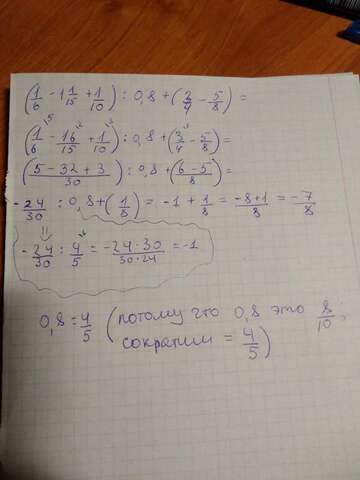 (1/6 - 1 1/15 + 1/10) : 0,8 + (3/4 - 5/8) =
(1/6 - 16/15 + 1/10) : 0,8 + (3/4 - 5/8) =
((5 - 32 + 3)/30) : 0,8 + ((6-5)/8) =
- 24/30 : 0,8 + (1/8) = -1 + 1/8 = (-8+1)/8 = -7/8
- 24/30 : 4/5 = (-24·30)/(30·24) = -1
0,8 = 4/5 (потому что 0,8 это 8/10,
сократим = 4/5)